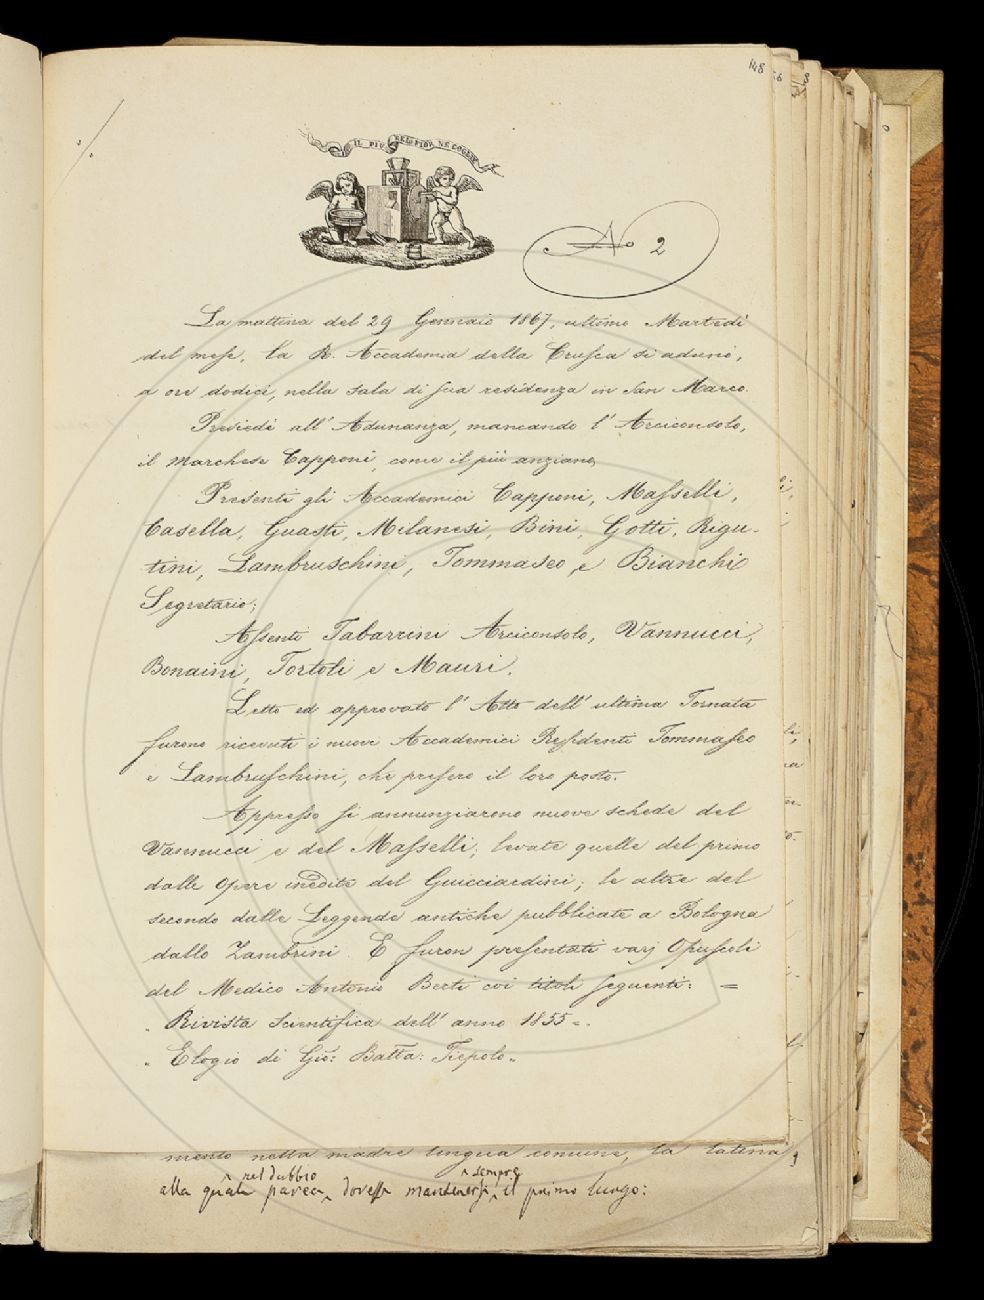 148
IL PIÙ BEL FIOR NE COGLIE
No 2
La mattina del 29 Gennaio 1867, ultimo Martedì
del mese, la R. Accademia della Crusca si adunò,
a ore dodici, nella sala di sua residenza in San Marco.
Presiedè all' Adunanza, mancando l' Arciconsolo,
il Marchese Capponi, come il più anziano,
Presenti gli Accademici Capponi, Masselli,
Casella, Guasti, Milanesi, Bini, Gotti, Rigu-
tini, Lambruschini, Tommaseo, e Bianchi
Segretario;
Assenti Tabarrini Arciconsolo, Vannucci,
Bonaini, Tortoli e Mauri.
Letto ed approvato l' Atto dell' ultima Tornata
furono ricevuti i nuovi Accademici Residenti Tommaseo
e Lambruschini, che presero il loro posto.
Appresso si annunziarono nuove schede del
Vannucci e del Masselli; levate quelle del primo
dalle Opere inedite del Guicciardini; le altre del
secondo dalle Leggende antiche pubblicate a Bologna
dallo Zambrini. E furon presentati varj Opuscoli
del Medico Antonio Berti coi titoli seguenti: =
„ Rivista Scientifica dell' anno 1855 „.
„ Elogio di Gio: Batta: Tiepolo „
mento nella madre lingua comune, la latina,
nel dubbio sempre
alla quale parea, dovesse mantenersi il primo luogo: